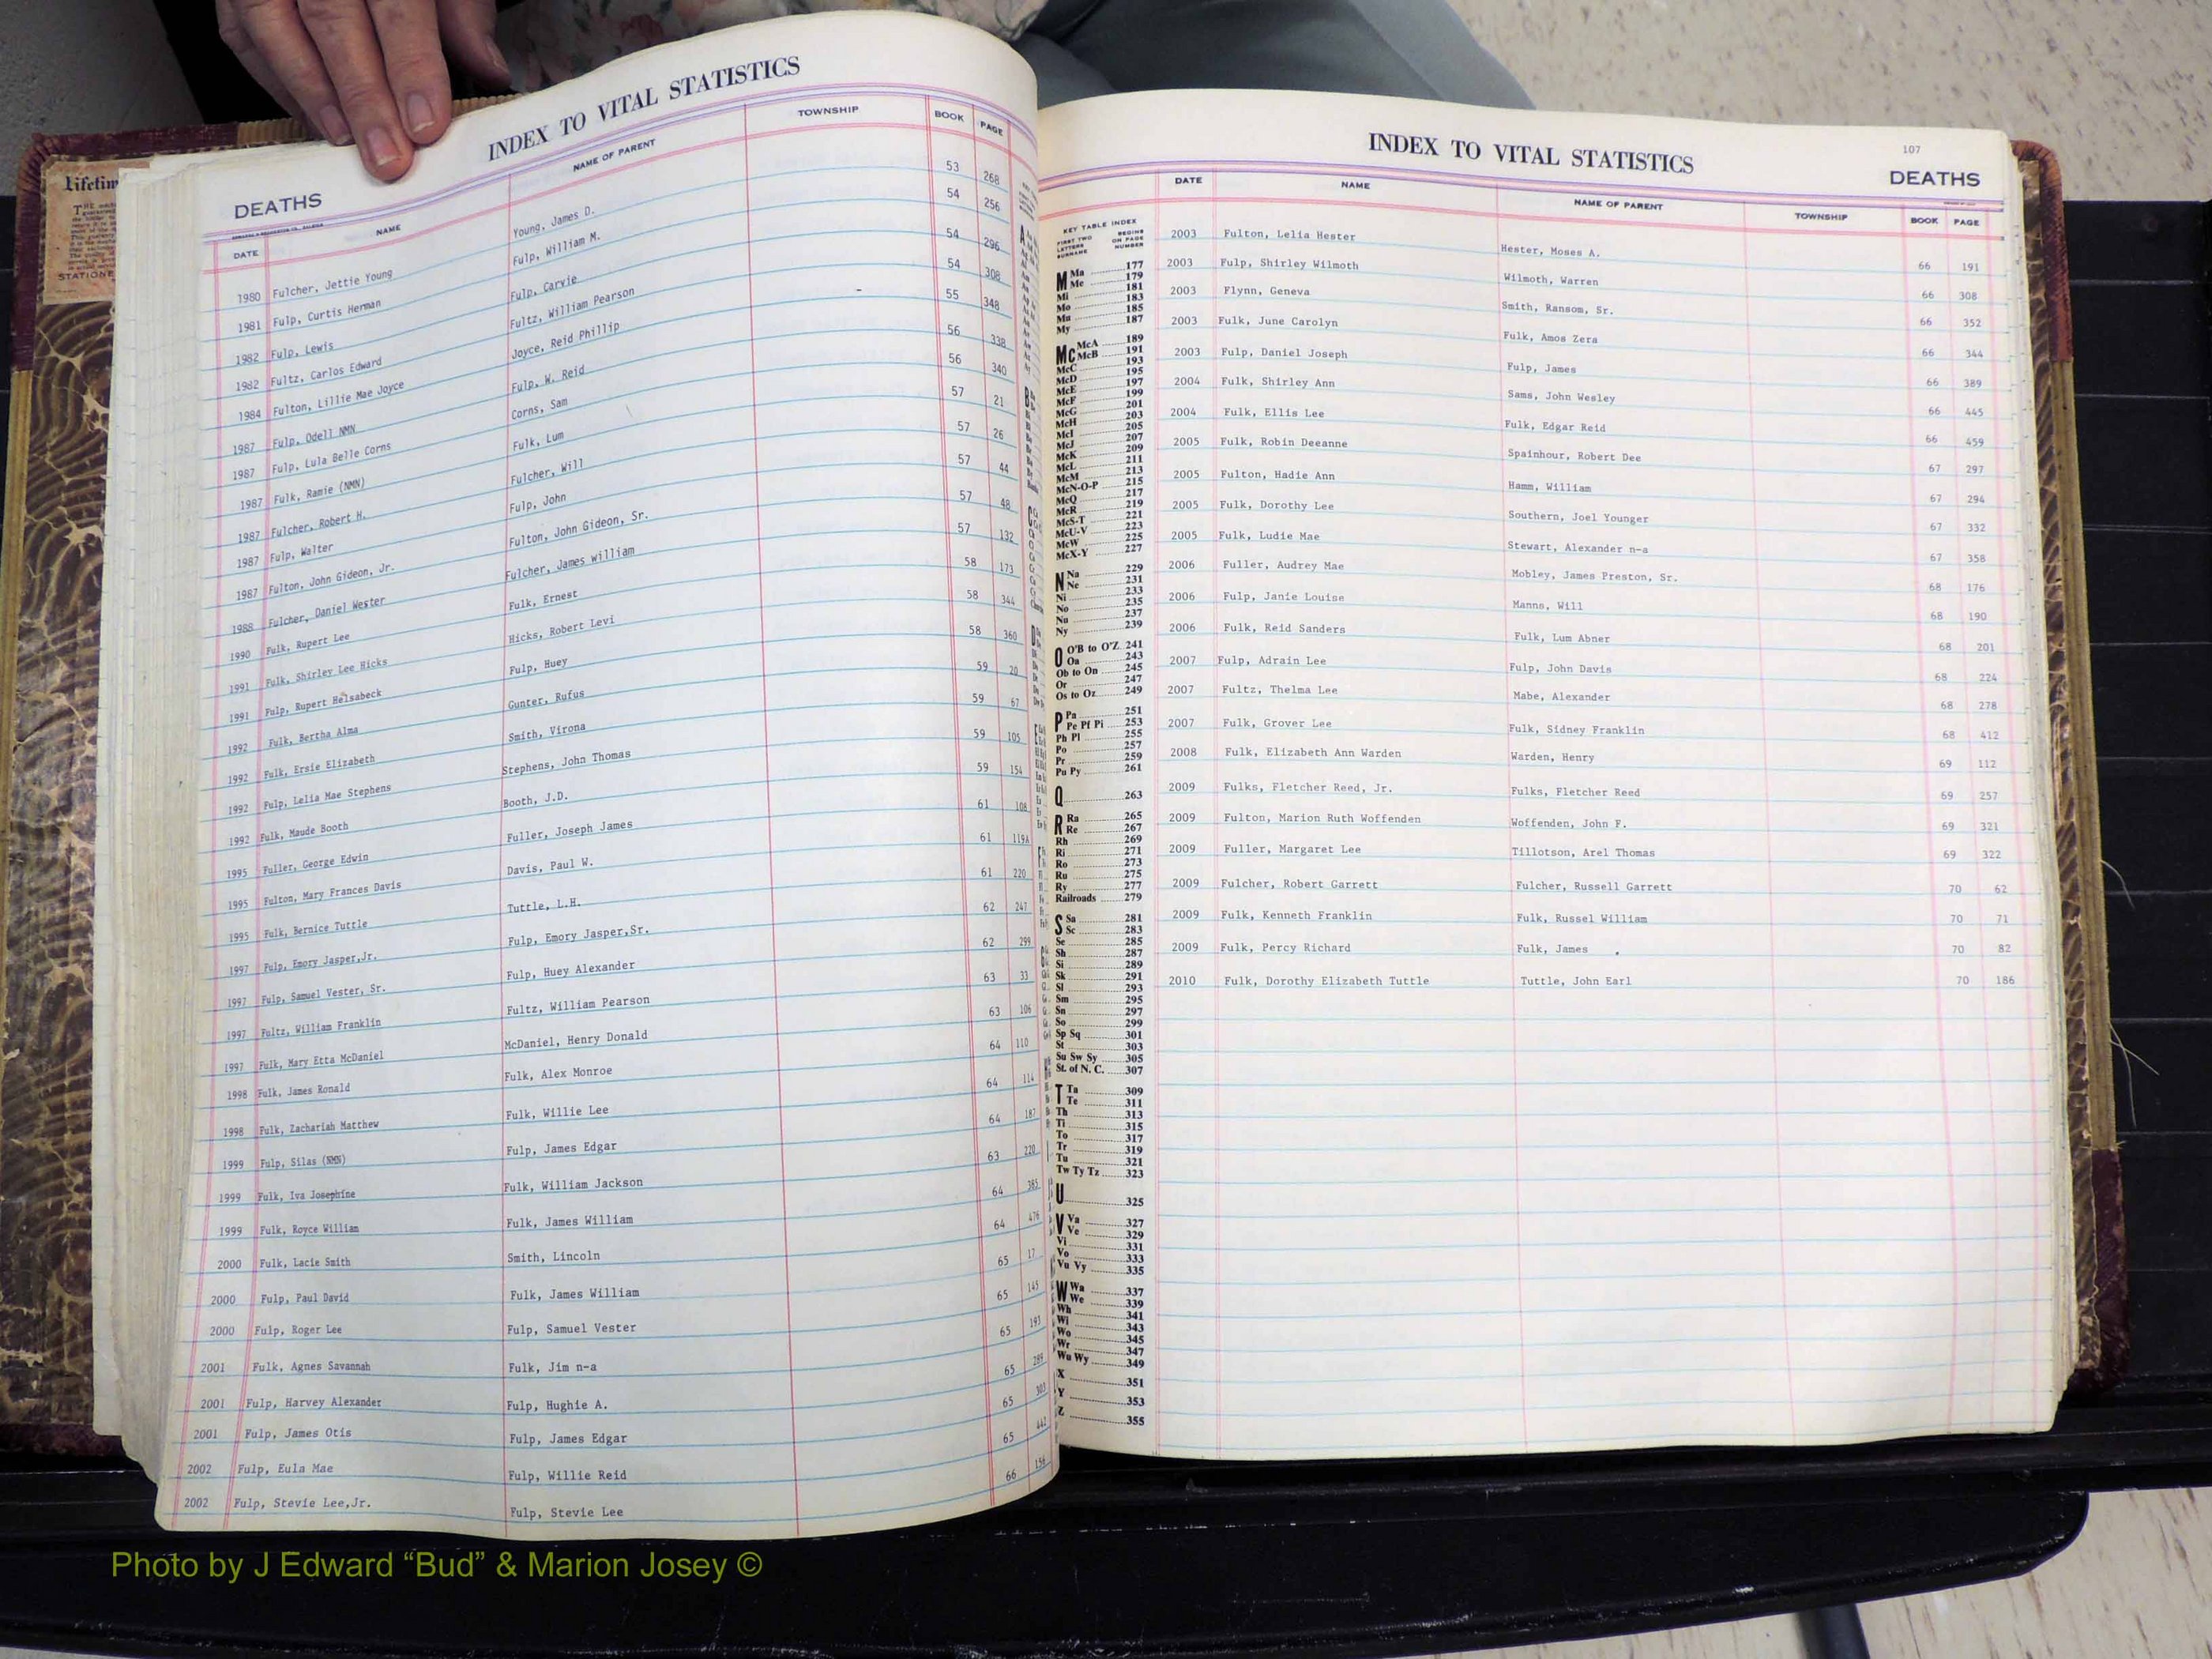 INDEX TO VITAL STATISTICS
DEATHS
DATE NAME NAME OF PARENT TOWNSHIP BOOK PAGE
1980 Fulcher, Jettie Young Young, James D. 53 268
1981 Fulp, Curtis Herman Fulp, William M. 54 256
1982 Fulp, Lewis Fulp, Carvie 54 296
1982 Fultz, Carlos Edward Fultz, William Pearson 54 308
1984 Fulton, Lillie Mae Joyce Joyce, Reid Phillip 55 348
1987 Fulp, Odell NMN Fulp, W. Reid 56 338
1987 Fulp, Lula Belle Corns Corns, Sam 56 340
1987 Fulk, Ramie (NMN) Fulk, Lum 57 21
1987 Fulcher, Robert H. Fulcher, Will 57 26
1987 Fulp, Walter Fulp, John 57 44
1987 Fulton, John Gideon, Jr. Fulton, John Gideon, Sr. 57 48
1988 Fulcher, Daniel Wester Fulcher, James william 57 132
1990 Fulk, Rupert Lee Fulk, Ernest 58 173
1991 Fulk, Shirley Lee Hicks Hicks, Robert Levi 58 344
1991 Fulp, Rupert Helsabeck Fulp, Huey 58 360
1992 Fulk, Bertha Alma Gunter, Rufus 59 20
1992 Fulk, Ersie Elizabeth Smith, Virona 59 67
1992 Fulp, Lelia Mae Stephens Stephens, John Thomas 59 105
1992 Fulk, Maude Booth Booth, J.D. 59 154
1995 Fuller, George Edwin Fuller, Joseph James 61 108
1995 Fulton, Mary Frances Davis Davis, Paul W. 61 119A
1995 Fulk, Bernice Tuttle Tuttle, L.H. 61 220
1997 Fulp, Emory Jasper,Jr. Fulp, Emory Jasper,Sr. 62 247
1997 Fulp, Samuel Vester, Sr. Fulp, Huey Alexander 62 299
1997 Fultz, William Franklin Fultz, William Pearson 63 33
1997 Fulk, Mary Etta McDaniel McDaniel, Henry Donald 63 106
1998 Fulk, James Ronald Fulk, Alex Monroe 64 110
1998 Fulk, Zachariah Matthew Fulk, Willie Lee 64 114
1999 Fulp, Silas (NMN) Fulp, James Edgar 64 187
1999 Fulk, Iva Josephine Fulk, William Jackson 63 220
1999 Fulk, Royce William Fulk, James William 64 385
2000 Fulk, Lacie Smith Smith, Lincoln 64 476
2000 Fulp, Paul David Fulk, James William 65 17
2000 Fulp, Roger Lee Fulp, Samuel Vester 65 145
2001 Fulk, Agnes Savannah Fulk, Jim n-a 65 193
2001 Fulp, Harvey Alexander Fulp, Hughie A. 65 289
2001 Fulp, James Otis Fulp, James Edgar 65 303
2002 Fulp, Eula Mae Fulp, Willie Reid 65 442
2002 Fulp, Stevie Lee,Jr. Fulp, Stevie Lee 66 156
107
INDEX TO VITAL STATISTICS
DEATHS
DATE NAME NAME OF PARENT TOWNSHIP BOOK PAGE
2003 Fulton, Lelia Hester Hester, Moses A. 66 191
2003 Fulp, Shirley Wilmoth Wilmoth, Warren 66 308
2003 Flynn, Geneva Smith, Ransom, Sr. 66 352
2003 Fulk, June Carolyn Fulk, Amos Zera 66 344
2003 Fulp, Daniel Joseph Fulp, James 66 389
2004 Fulk, Shirley Ann Sams, John Wesley 66 445
2004 Fulk, Ellis Lee Fulk, Edgar Reid 66 459
2005 Fulk, Robin Deeanne Spainhour, Robert Dee 67 297
2005 Fulton, Hadie Ann Hamm, William 66 294
2005 Fulk, Dorothy Lee Southern, Joel Younger 67 332
2005 Fulk, Ludie Mae Stewart, Alexander n-a 67 358
2006 Fuller, Audrey Mae Mobley, James Preston, Sr. 68 176
2006 Fulp, Janie Louise Manns, Will 68 190
2006 Fulk, Reid Sanders Fulk, Lum Abner 68 201
2007 Fulp, Adrain Lee Fulp, John Davis 68 224
2007 Fultz, Thelma Lee Mabe, Alexander 68 278
2007 Fulk, Grover Lee Fulk, Sidney Franklin 68 412
2008 Fulk, Elizabeth Ann Warden Warden, Henry 69 112
2009 Fulks, Fletcher Reed, Jr. Fulks, Fletcher Reed 69 257
2009 Fulton, Marion Ruth Woffenden Woffenden, John F. 69 321
2009 Fuller, Margaret Lee Tillotson, Arel Thomas 69 322
2009 Fulcher, Robert Garrett Fulcher, Russell Garrett 70 62
2009 Fulk, Kenneth Franklin Fulk, Russel William 70 71
2009 Fulk, Percy Richard Fulk, James 70 82
2010 Fulk, Dorothy Elizabeth Tuttle Tuttle, John Earl 70 186
KEY TABLE INDEX
FIRST TWO LETTERS SURNAME BEGINS ON PAGE NUMBER
M Ma 177
Me 179
Mi 181
Mo 183
Mu 185
My 187
Mc McA 189
McB 191
McC 193
McD 195
McE 197
McF 199
McG 201
McH 203
McI 205
McJ 207
McK 209
McL 211
McM 213
McN-O-P 215
McQ 217
McR 219
McS-T 221
McU-V 223
McW 225
McX-Y 227
N Na 229
Ne 231
Ni 233
No 235
Nu 237
Ny 239
O O'B to O'Z 241
Oa 243
Ob to On 245
Or 247
Os to Oz 249
P Pa 251
Pe Pf Pi 253
Ph Pl 255
Po 257
Pr 259
Pu Py 261
Q 263
R Ra 265
Re 267
Rh 269
Ri 271
Ro 273
Ru 275
Ry 277
Railroads 279
S Sa 281
Sc 283
Se 285
Sh 287
Si 289
Sk 291
Sl 293
Sm 295
Sn 297
So 299
Sp Sq 301
St 303
Su Sw Sy 305
St. of N. C. 307
T Ta 309
Te 311
Th 313
Ti 315
To 317
Tr 319
Tu 321
Tw Ty Tz 323
U 325
V Va 327
Ve 329
Vi 331
Vo 333
Vu Vy 335
W Wa 337
We 339
Wh 341
Wi 343
Wo 345
Wr 347
Wu Wy 349
X 351
Y 353
Z 355
Photo by J Edward “Bud” & Marion Josey ©